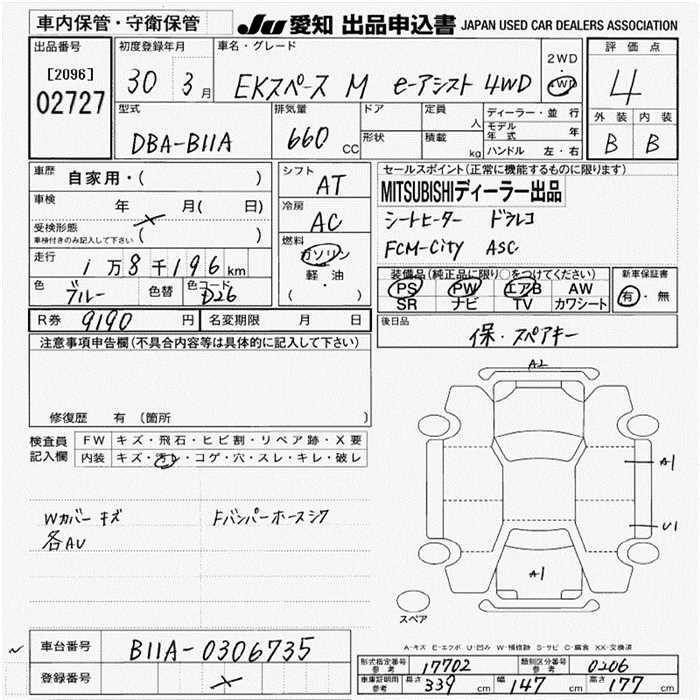 車内保管・守衛保管
JU 愛知 出品申込書 JAPAN USED CAR DEALERS ASSOCIATION
出品番号
[2096]
02727
初度登録年月
30 3月
車名・グレード
EKスペース M e-アシスト 4WD
2WD
4WD
評価点
4
外装 内装
B B
型式
DBA-B11A
排気量
660 CC
ドア
形状
定員 人
積載 kg
ディーラー・並行
モデル年式 年
ハンドル 左・右
車歴 自家用・( )
車検 年 月( 日)
受検形態
車検付きのみ記入して下さい ( )
走行 1万8千196km
色 ブルー 色替 色コード D26
シフト AT
冷房 AC
燃料
ガソリン
軽・油
( ・ )
セールスポイント(正常に機能するものに限ります)
MITSUBISHIディーラー出品
シートヒーター ドラレコ
FCM-City ASC
装備品(純正品に限り○をつけてください)
PS PW エアB AW
SR ナビ TV カワシート
新車保証書
有・無
R券 9190 円 名変期限 月 日
後日品
保・スペアキー
注意事項申告欄(不具合内容等は具体的に記入して下さい)
修復歴 有(箇所 )
検査員記入欄
FW キズ・飛石・ヒビ割・リペア跡・X要
内装 キズ・汚レ・コゲ・穴・スレ・キレ・破レ
Wカバー キズ Fバンパーホースシワ
各AU
A2
A1
U1
A1
スペア
A-キズ E-エクボ U-凹み W-補修跡 S-サビ C-腐食 XX-交換済
車台番号 B11A-0306735
登録番号
形式指定番号 参考 17702 類別区分番号 参考 0206
車庫証明用 参考 長さ 339 cm 幅 147 cm 高さ 177 cm